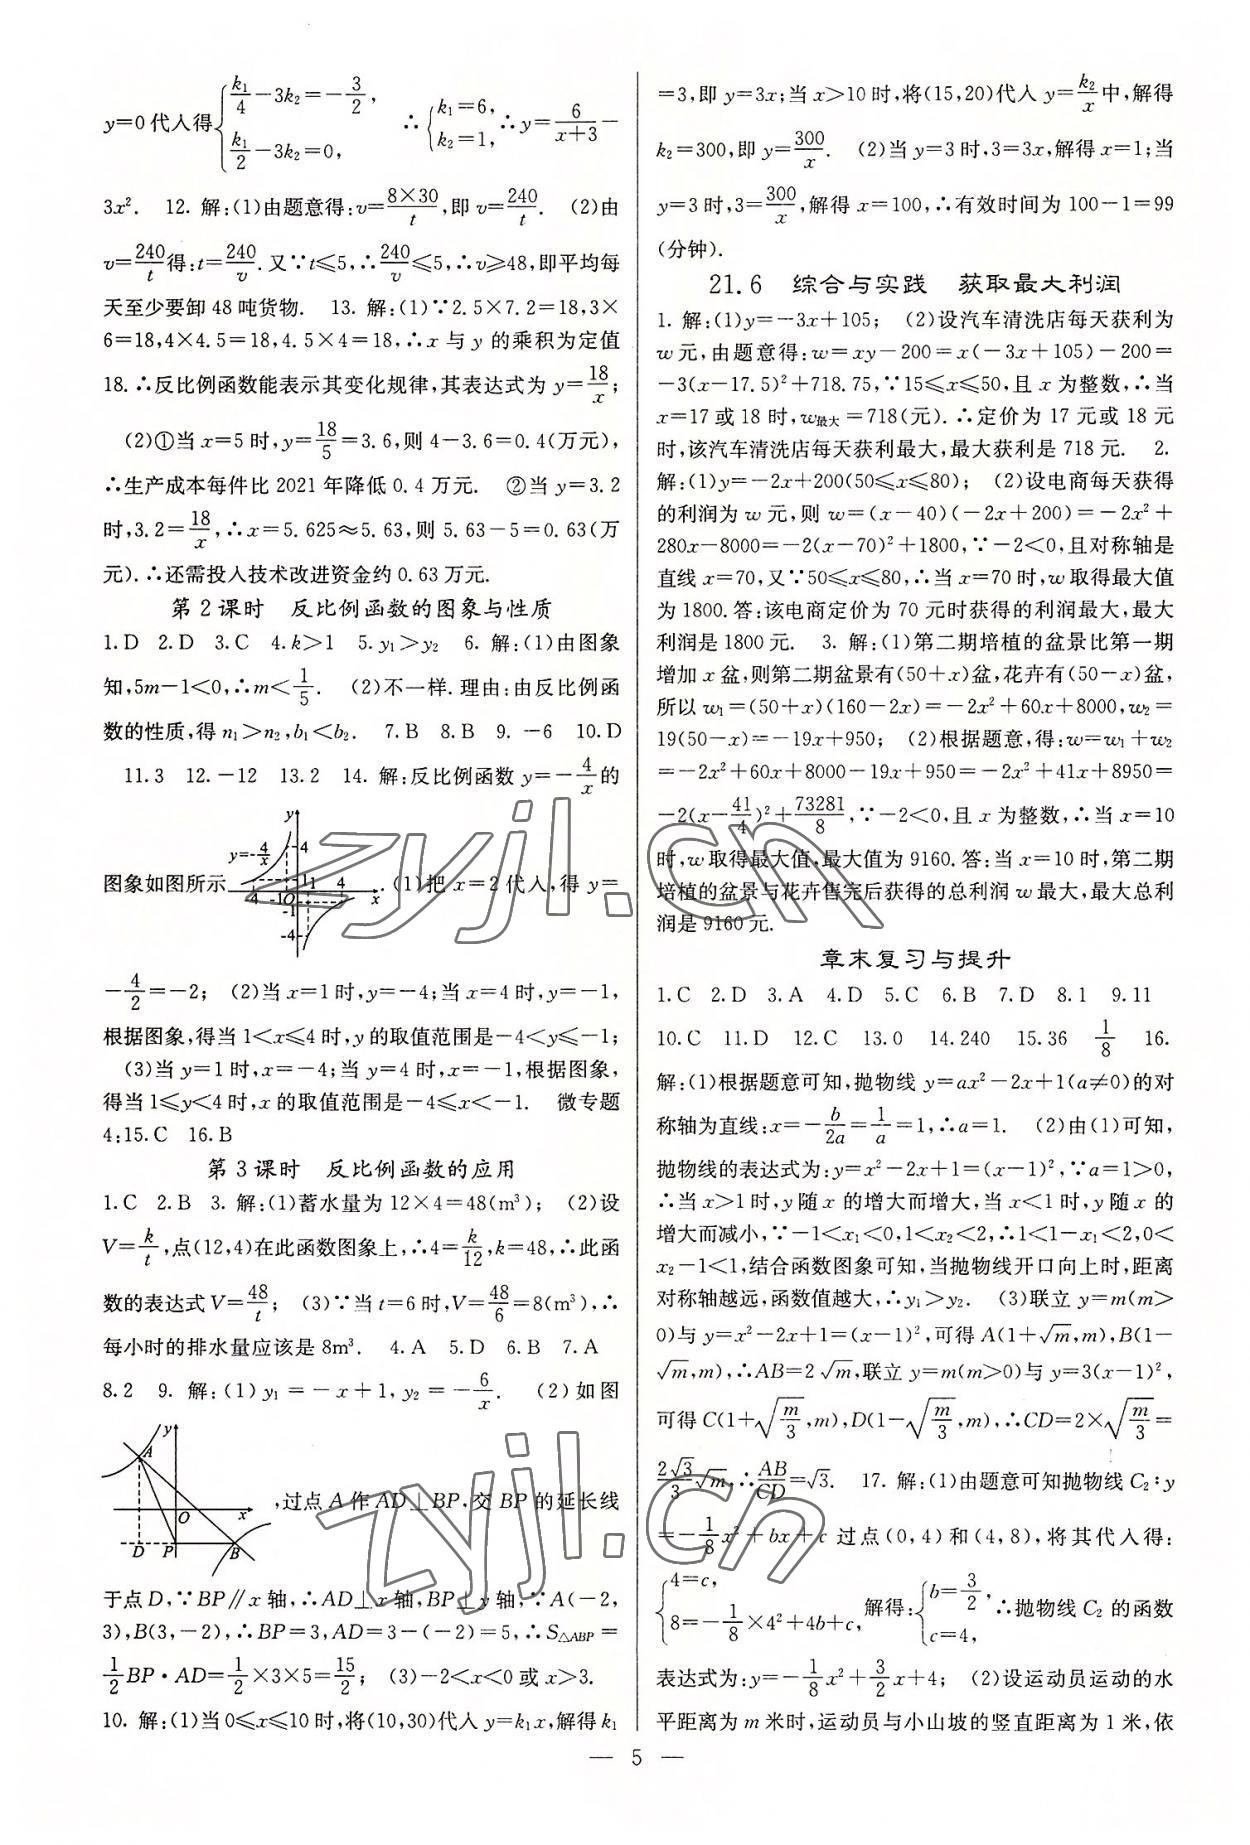 y=0代入得{k₁/4−3k₂=−3/2, k₁/2−3k₂=0, ∴{k₁=6, k₂=1, ∴y=6/(x+3)−
3x². 12. 解:(1)由题意得:v=8×30/t,即v=240/t. (2)由
v=240/t得:t=240/v.又∵t≤5,∴240/v≤5,∴v≥48,即平均每
天至少要卸48吨货物. 13. 解:(1)∵2.5×7.2=18,3×
6=18,4×4.5=18,4.5×4=18,∴x与y的乘积为定值
18.∴反比例函数能表示其变化规律,其表达式为y=18/x;
(2)①当x=5时,y=18/5=3.6,则4−3.6=0.4(万元),
∴生产成本每件比2021年降低0.4万元. ②当y=3.2
时,3.2=18/x,∴x=5.625≈5.63,则5.63−5=0.63(万
元).∴还需投入技术改进资金约0.63万元.
第2课时 反比例函数的图象与性质
1.D 2.D 3.C 4.k>1 5.y₁>y₂ 6. 解:(1)由图象
知,5m−1<0,∴m<1/5. (2)不一样.理由:由反比例函
数的性质,得n₁>n₂,b₁<b₂. 7.B 8.B 9.−6 10.D
11.3 12.−12 13.2 14. 解:反比例函数y=−4/x的
图象如图所示
y=−4/x y 4 1 −4 −1 O 1 4 x −1 −4
.(1)把x=2代入,得y=
−4/2=−2; (2)当x=1时,y=−4;当x=4时,y=−1,
根据图象,得当1<x≤4时,y的取值范围是−4<y≤−1;
(3)当y=1时,x=−4;当y=4时,x=−1,根据图象,
得当1≤y<4时,x的取值范围是−4≤x<−1. 微专题
4:15.C 16.B
第3课时 反比例函数的应用
1.C 2.B 3. 解:(1)蓄水量为12×4=48(m³); (2)设
V=k/t,点(12,4)在此函数图象上,∴4=k/12,k=48,∴此函
数的表达式V=48/t; (3)∵当t=6时,V=48/6=8(m³),∴
每小时的排水量应该是8m³. 4.A 5.D 6.B 7.A
8.2 9. 解:(1)y₁=−x+1,y₂=−6/x. (2)如图
y A O x D P B
,过点A作AD⊥BP,交BP的延长线
于点D,∵BP∥x轴,∴AD⊥x轴,BP⊥y轴,∵A(−2,
3),B(3,−2),∴BP=3,AD=3−(−2)=5,∴S△ABP=
1/2BP·AD=1/2×3×5=15/2; (3)−2<x<0或x>3.
10. 解:(1)当0≤x≤10时,将(10,30)代入y=k₁x,解得k₁
=3,即y=3x;当x>10时,将(15,20)代入y=k₂/x中,解得
k₂=300,即y=300/x. (2)当y=3时,3=3x,解得x=1;当
y=3时,3=300/x,解得x=100,∴有效时间为100−1=99
(分钟).
21.6 综合与实践 获取最大利润
1. 解:(1)y=−3x+105; (2)设汽车清洗店每天获利为
w元,由题意得:w=xy−200=x(−3x+105)−200=
−3(x−17.5)²+718.75,∵15≤x≤50,且x为整数,∴当
x=17或18时,w最大=718(元).∴定价为17元或18元
时,该汽车清洗店每天获利最大,最大获利是718元. 2.
解:(1)y=−2x+200(50≤x≤80); (2)设电商每天获得
的利润为w元,则w=(x−40)(−2x+200)=−2x²+
280x−8000=−2(x−70)²+1800,∵−2<0,且对称轴是
直线x=70,又∵50≤x≤80,∴当x=70时,w取得最大值
为1800.答:该电商定价为70元时获得的利润最大,最大
利润是1800元. 3. 解:(1)第二期培植的盆景比第一期
增加x盆,则第二期盆景有(50+x)盆,花卉有(50−x)盆,
所以w₁=(50+x)(160−2x)=−2x²+60x+8000,w₂=
19(50−x)=−19x+950; (2)根据题意,得:w=w₁+w₂
=−2x²+60x+8000−19x+950=−2x²+41x+8950=
−2(x−41/4)²+73281/8,∵−2<0,且x为整数,∴当x=10
时,w取得最大值,最大值为9160.答:当x=10时,第二期
培植的盆景与花卉售完后获得的总利润w最大,最大总利
润是9160元.
章末复习与提升
1.C 2.D 3.A 4.D 5.C 6.B 7.D 8.1 9.11
10.C 11.D 12.C 13.0 14.240 15.36 1/8 16.
解:(1)根据题意可知,抛物线y=ax²−2x+1(a≠0)的对
称轴为直线:x=−b/2a=1/a=1,∴a=1. (2)由(1)可知,
抛物线的表达式为:y=x²−2x+1=(x−1)²,∵a=1>0,
∴当x>1时,y随x的增大而增大,当x<1时,y随x的
增大而减小,∵−1<x₁<0,1<x₂<2,∴1<1−x₁<2,0<
x₂−1<1,结合函数图象可知,当抛物线开口向上时,距离
对称轴越远,函数值越大,∴y₁>y₂. (3)联立y=m(m>
0)与y=x²−2x+1=(x−1)²,可得A(1+√m,m),B(1−
√m,m),∴AB=2√m,联立y=m(m>0)与y=3(x−1)²,
可得C(1+√(m/3),m),D(1−√(m/3),m),∴CD=2×√(m/3)=
2√3/3√m,∴AB/CD=√3. 17. 解:(1)由题意可知抛物线C₂:y
=−1/8x²+bx+c过点(0,4)和(4,8),将其代入得:
{4=c, 8=−1/8×4²+4b+c, 解得:{b=3/2, c=4, ∴抛物线C₂的函数
表达式为:y=−1/8x²+3/2x+4; (2)设运动员运动的水
平距离为m米时,运动员与小山坡的竖直距离为1米,依
— 5 —
zyjl.cn
zyjl.cn